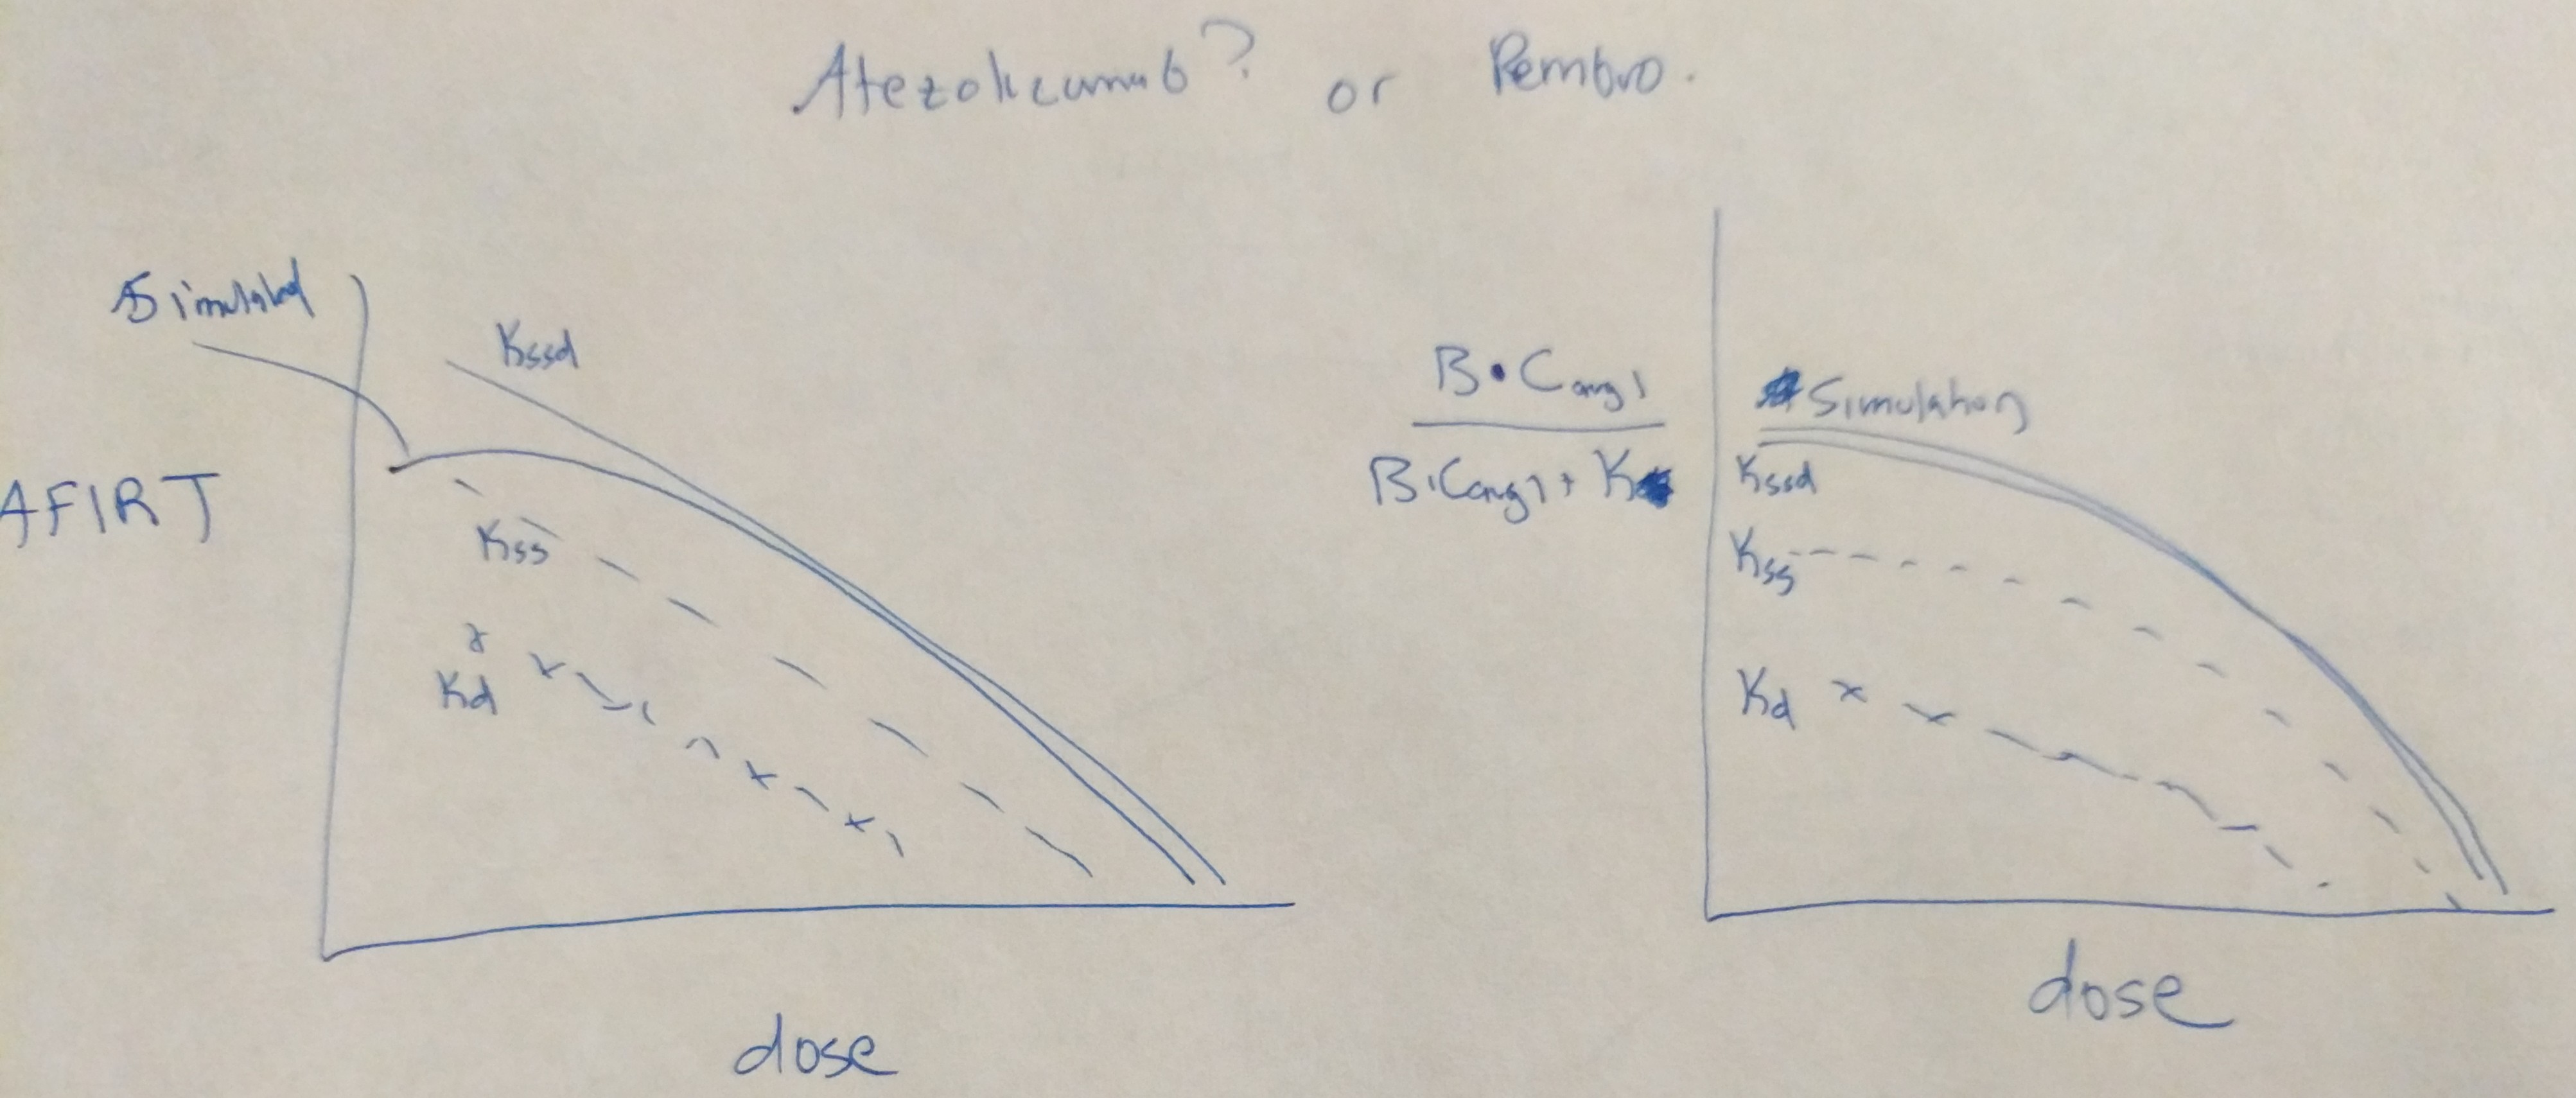 Atezolizumab? or Pembro.
Simulated
Kssd
AFIRT
Kss
Kd
dose
B•Cavg1
B•Cavg1 + K
Simulation
Kssd
Kss
Kd
dose